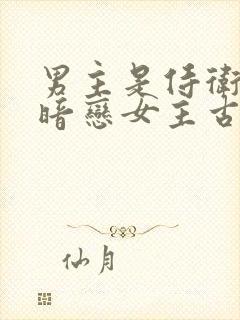 男主是侍衛
暗戀女主古
仙月